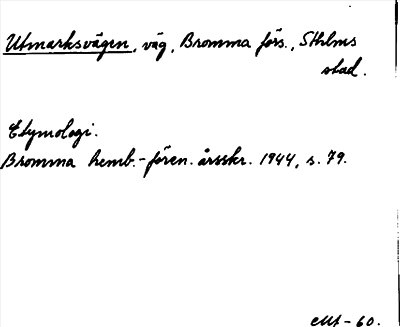 Utmarksvägen, väg, Bromma förs., Sthlms
stad.
Etymologi.
Bromma hemb.-fören. årsskr. 1944, s. 79.
-60.